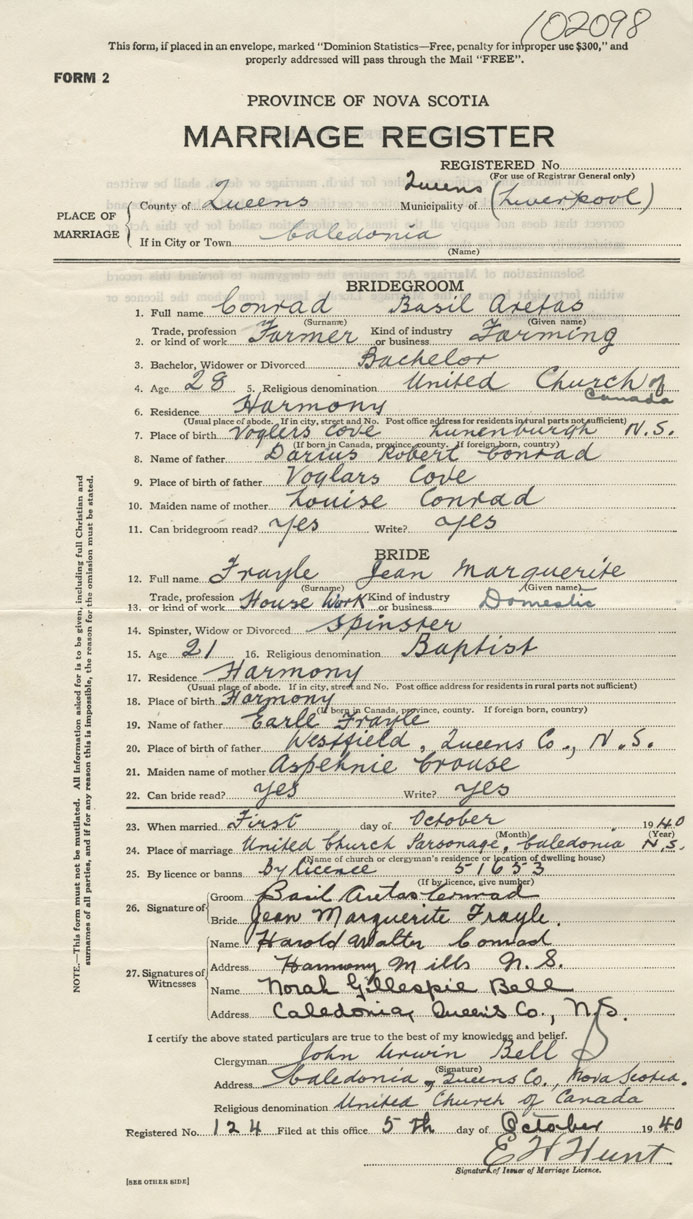 102098
This form, if placed in an envelope, marked "Dominion Statistics—Free, penalty for improper use $300," and
properly addressed will pass through the Mail "FREE".
FORM 2
PROVINCE OF NOVA SCOTIA
MARRIAGE REGISTER
REGISTERED No.
(For use of Registrar General only)
PLACE OF MARRIAGE
County of Queens Municipality of Queens (Liverpool)
If in City or Town Caledonia
(Name)
BRIDEGROOM
1. Full name Conrad Basil Aretas
(Surname) (Given name)
2. Trade, profession or kind of work Farmer Kind of industry or business Farming
3. Bachelor, Widower or Divorced Bachelor
4. Age 28 5. Religious denomination United Church of Canada
6. Residence Harmony
(Usual place of abode. If in city, street and No. Post office address for residents in rural parts not sufficient)
7. Place of birth Voglers Cove Lunenburgh N.S.
(If born in Canada, province, county. If foreign born, country)
8. Name of father Darius Robert Conrad
9. Place of birth of father Voglars Cove
10. Maiden name of mother Louise Conrad
11. Can bridegroom read? Yes Write? Yes
BRIDE
12. Full name Frayle Jean Marguerite
(Surname) (Given name)
13. Trade, profession or kind of work House Work Kind of industry or business Domestic
14. Spinster, Widow or Divorced Spinster
15. Age 21 16. Religious denomination Baptist
17. Residence Harmony
(Usual place of abode. If in city, street and No. Post office address for residents in rural parts not sufficient)
18. Place of birth Harmony
(If born in Canada, province, county. If foreign born, country)
19. Name of father Earle Frayle
20. Place of birth of father Westfield, Queens Co., N.S.
21. Maiden name of mother Crouse
22. Can bride read? Yes Write? Yes
23. When married First day of October 1940
(Month) (Year)
24. Place of marriage United Church Parsonage, Caledonia N.S.
(Name of church or clergyman's residence or location of dwelling house)
25. By licence or banns by licence 51653
(If by licence, give number)
26. Signature of
Groom Basil Aretas Conrad
Bride Jean Marguerite Frayle.
27. Signatures of Witnesses
Name Harold Walter Conrad
Address Harmony Mills N.S.
Name Norah Gillespie Bell
Address Caledonia, Queens Co., N.S.
I certify the above stated particulars are true to the best of my knowledge and belief.
Clergyman John Irwin Bell
(Signature)
Address Caledonia, Queens Co., Nova Scotia.
Religious denomination United Church of Canada
Registered No. 124 Filed at this office 5th day of October 1940
E H Hunt
Signature of Issuer of Marriage Licence.
[SEE OTHER SIDE]
NOTE.—This form must not be mutilated. All information asked for is to be given, including full Christian and
surnames of all parties, and if for any reason this is impossible, the reason for the omission must be stated.